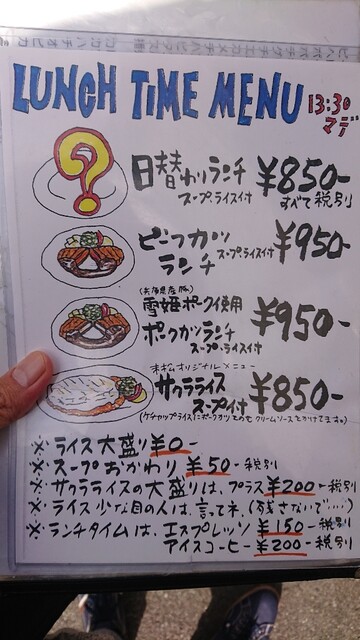 LUNCH TIME MENU 13:30マデ
?
日替わりランチ ¥850-
スープ、ライス付 すべて税別
ビーフカツランチ ¥950-
スープ、ライス付
(兵庫県産豚)
雪姫ポーク使用
ポークカツランチ ¥950-
スープ、ライス付
オリジナルメニュー
サクラライス ¥850-
スープ付
(ケチャップライスにポークカツとのせクリームソースをかけてます。)
※ライス大盛り¥0-
※スープおかわり¥50-税別
※サクラライスの大盛りは、プラス¥200-税別
※ライス少な目の人は、言ってネ。(残さないで……)
※ランチタイムは、エスプレッソ ¥150-税別
アイスコーヒー¥200-税別